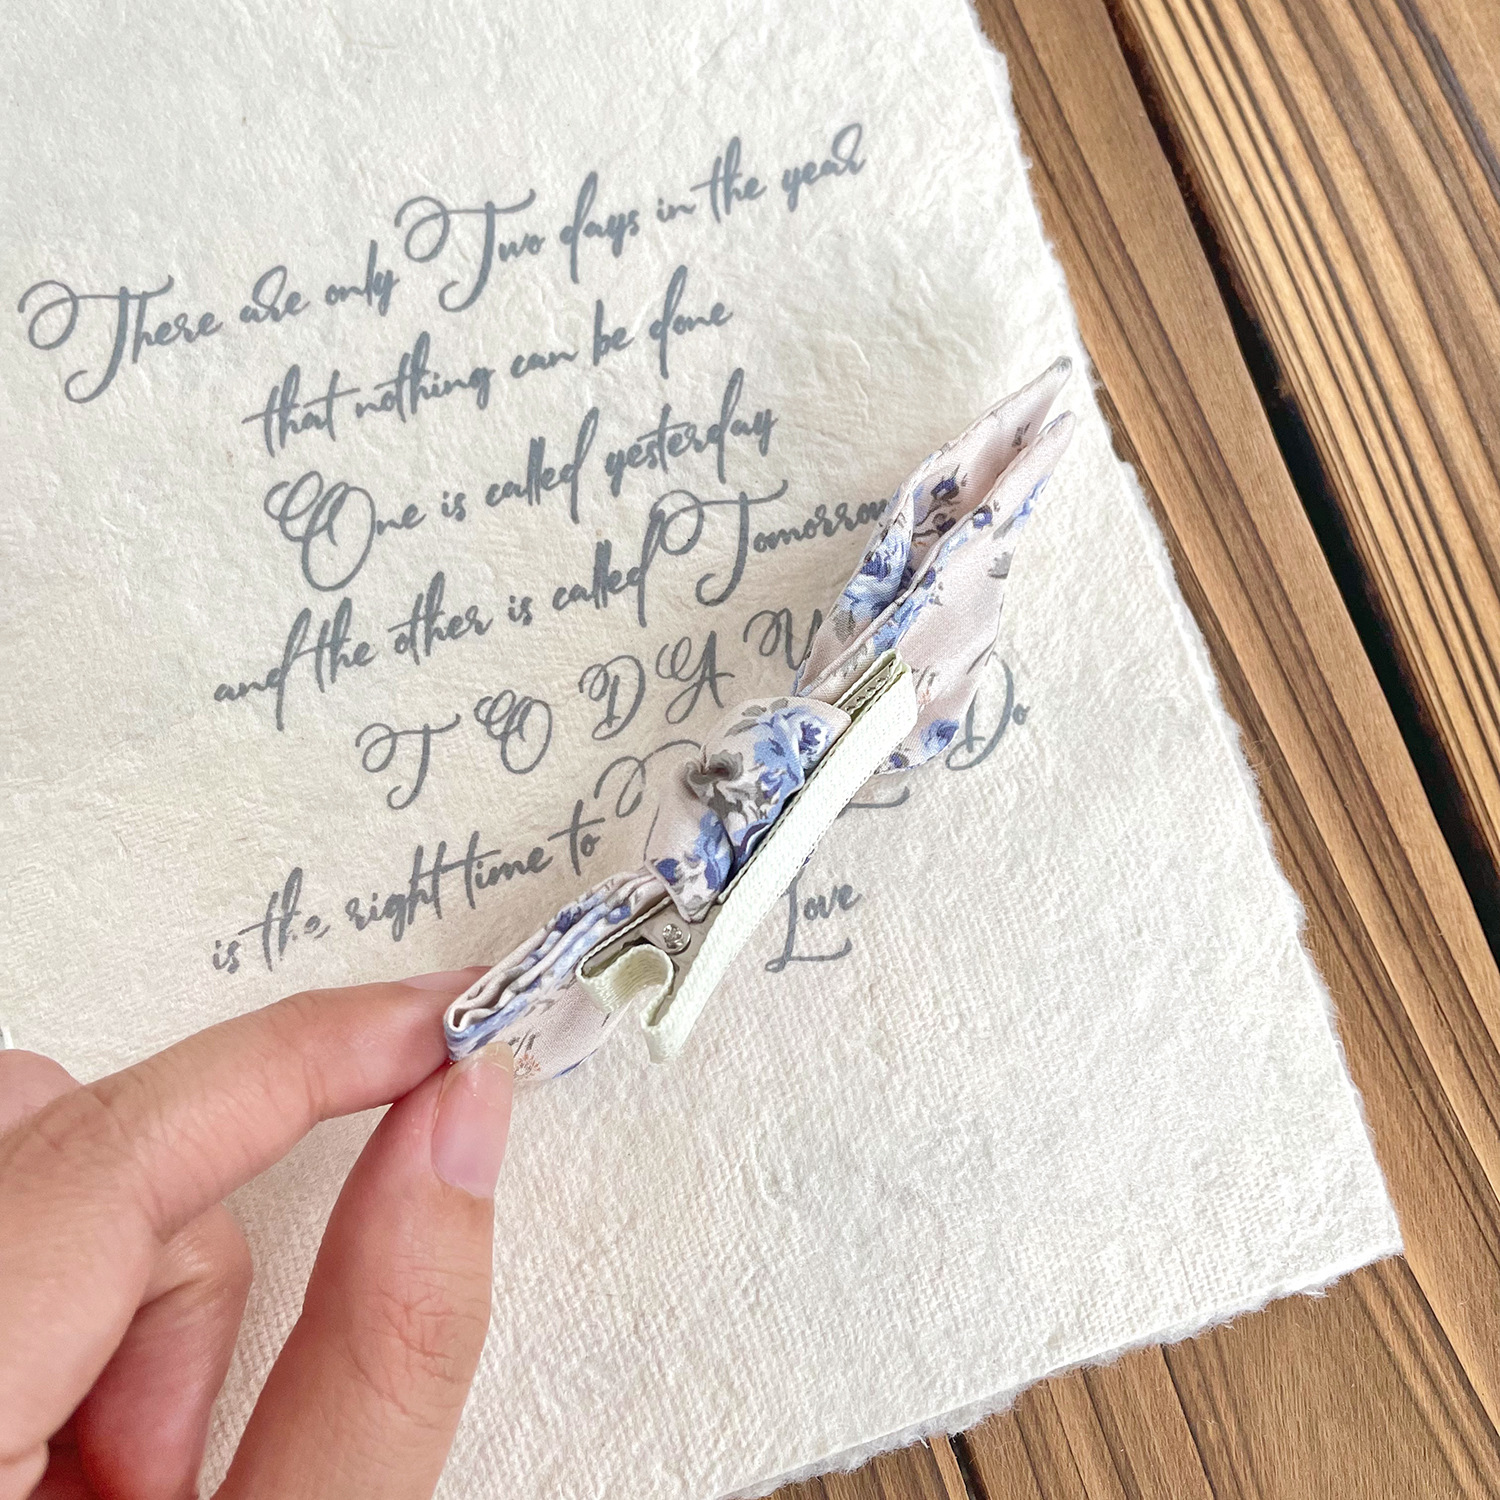 There are only Two days in the year
that nothing can be done
One is called yesterday
and the other is called Tomorrow
T O D A Y
is the right time to Do
Love